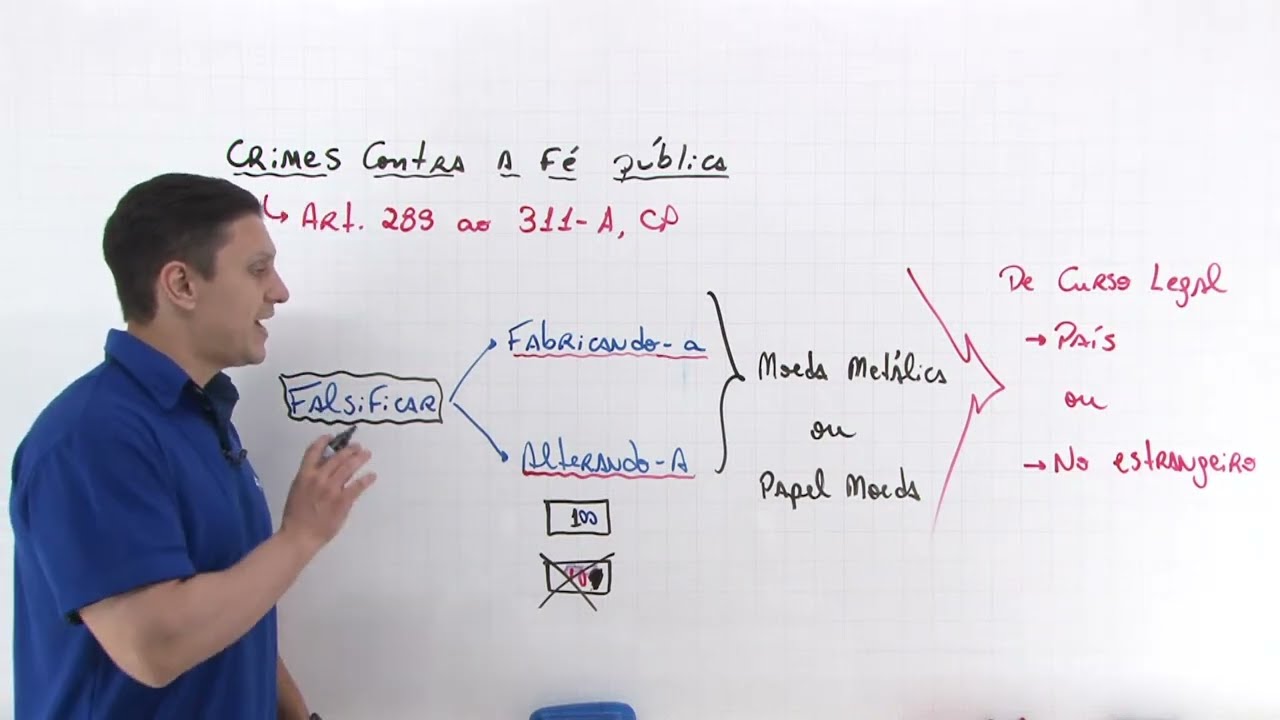 CRIMES CONTRA A FÉ PÚBLICA
↳ ART. 289 ao 311-A, CP
FALSIFICAR
FABRICANDO-a
ALTERANDO-A
100
MOEDA METÁLICA
ou
PAPEL MOEDA
DE CURSO LEGAL
→ PAÍS
ou
→ NO ESTRANGEIRO